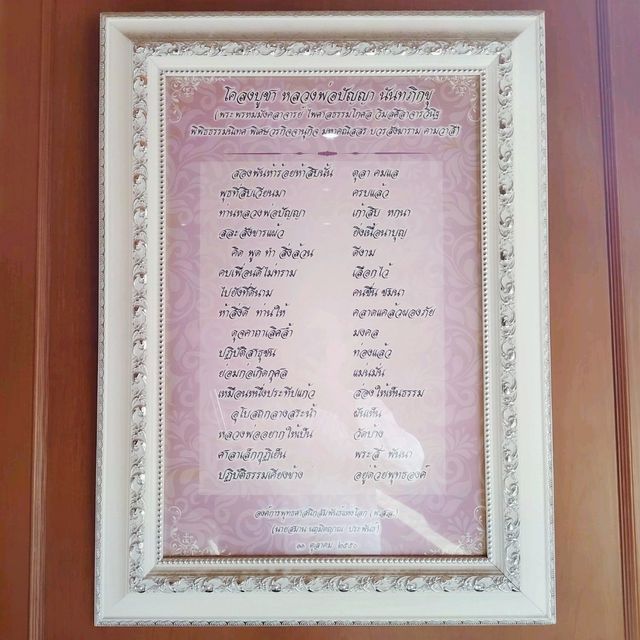 โคลงบูชา หลวงพ่อปัญญา นันทภิกขุ
(พระพรหมมังคลาจารย์ ไพศาลธรรมโกศล วิมลศีลาจารวินิฐ
พิพิธธรรมนิเทศ พิเศษวรกิจจานุกิจ มหาคณิสสร บวรสังฆาราม คามวาสี)
สองพันห้าร้อยห้าสิบนั้น ตุลา คมแล
พุธที่สิบเวียนมา ครบแล้ว
ท่านหลวงพ่อปัญญา เก้าสิบ หกนา
สละสังขารแผ้ว ยิ่งเนื้อนาบุญ
คิด พูด ทำ สิ่งล้วน ดีงาม
คบเพื่อนดีไม่ทราม เลือกไว้
ไปยังที่ดีนาม คนชื่น ชมนา
ทำสิ่งดี ทานให้ คลาดแคล้วผองภัย
ดุจคาถาเลิศล้ำ มงคล
ปฏิบัติสาธุชน ท่องแล้ว
ยอมก่อเกิดกุศล แม่นมั่น
เหมือนหนึ่งประทีปแก้ว ส่องให้เห็นธรรม
อุโบสถกลางสระน้ำ ฝันเห็น
หลวงพ่ออยากให้เป็น วัดบ้าง
ศาลาเล็กกุฏิเย็น พระสี่ พันนา
ปฏิบัติธรรมเคียงข้าง อยู่ด้วยพุทธองค์
องค์การพุทธศาสนิกสัมพันธ์แห่งโลก (พ.ส.ล.)
๑๑ ตุลาคม ๒๕๕๐